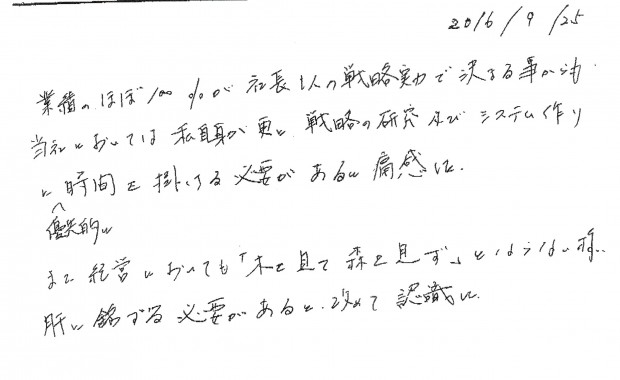 2016/9/25
業績のほぼ100%が社長1人の戦略実力で決まる事からも
当社においては私自身が更に戦略の研究及びシステム作り
に時間を掛ける必要があると痛感した.
優先的に
また経営においても「木を見て森を見ず」とならない様に
肝に銘ずる必要があると、改めて認識した.